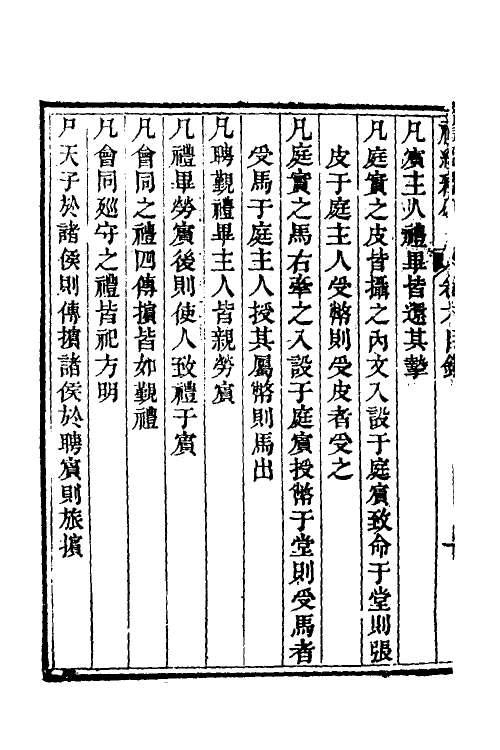 凡賓主人禮畢皆還其摯
凡庭實之皮皆攝之內文入設于庭賓致命于堂則張
皮于庭主人受幣則受皮者受之
凡庭實之馬右牽之入設于庭賓授幣于堂則受馬者
受馬于庭主人授其屬幣則馬出
凡聘覲禮畢主人皆親勞賓
凡禮畢勞賓後則使人致禮于賓
凡會同之禮四傳擯皆如覲禮
凡會同巡守之禮皆祀方明
凡天子於諸侯則傳擯諸侯於聘賓則旅擯